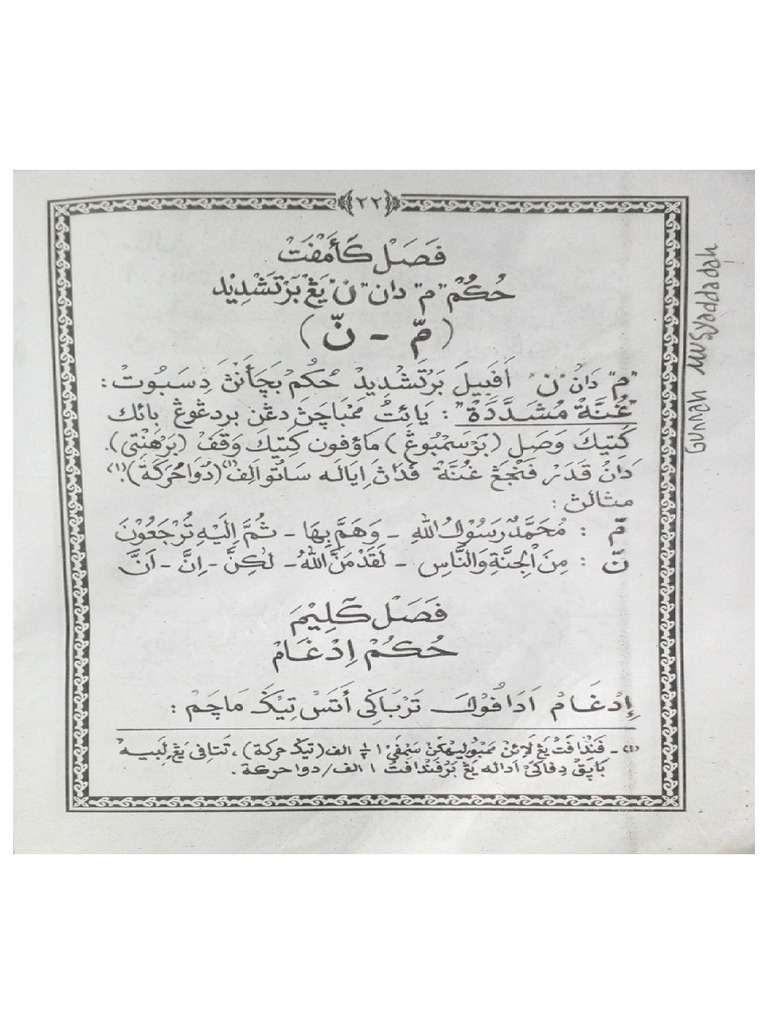 ٢٢
فَصَلْ كَأَمْفَتْ
حُكُمْ "م" دان "ن" يڠ بَرْتَشْدِيد
(مّ - نّ)
"م" دانْ "ن" اَفَبِيلَ بَرْتَشْدِيد حُكُمْ بَچَأَنْڽَ دِسَبُوتْ :
"غُنَّةْ مُشَدَّدَةْ" : يَائِتُ مَمْبَاچَنْ دڠن بردڠوڠ بائك
كَتِيك وَصَل (بَرْسَمْبُوڠ) مَاؤفون كَتِيك وَقَفْ (بَرْهَنْتِي).
دَانْ قَدَرْ فَنْجَڠ غُنَّةْ فَدَاڽ اِيَالَه سَاتُو الِفْ (دُوَا حُرَكَةْ)(١).
مثالڽ :
مّ : مُحَمَّدٌ رَسُوْلُ اللهِ - وَهَمَّ بِهَا - ثُمَّ إِلَيْهِ تُرْجَعُوْنَ
نّ : مِنَ الْجِنَّةِ وَالنَّاسِ - لَقَدْ مَنَّ اللهُ - لٰكِنَّ - اِنَّ - اَنَّ
فَصَلْ كَلِيْمَ
حُكُمْ اِدْغَامْ
إِدْغَامْ اَدَا فُوْلَ تَرْبَاكِي أَتَسْ تِيْݢَ مَاچَمْ :
(١) - فَنْدَافَتْ يڠ لَائِنْ ممبوليهكن سَمْفَي ١½ الف (تيݢ حركة)، تَتَافِي يڠ لَبِيه
بَاپَقْ دِفَاكَيْ اَدَالَه يڠ بَرْفَنْدَافَتْ ١ الف/دوا حركة.
Gunnah Musyaddadah